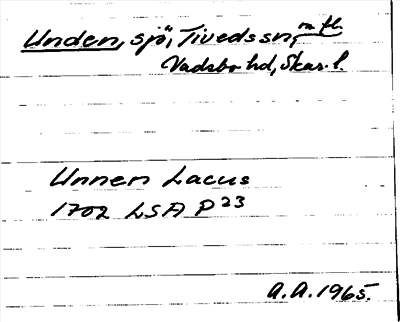 Unden, sjö, Tiveds sn, m fl
Vadsbo hd, Skar. l.
Unnen Lacus
1702 LSA P23
A.A. 1965.